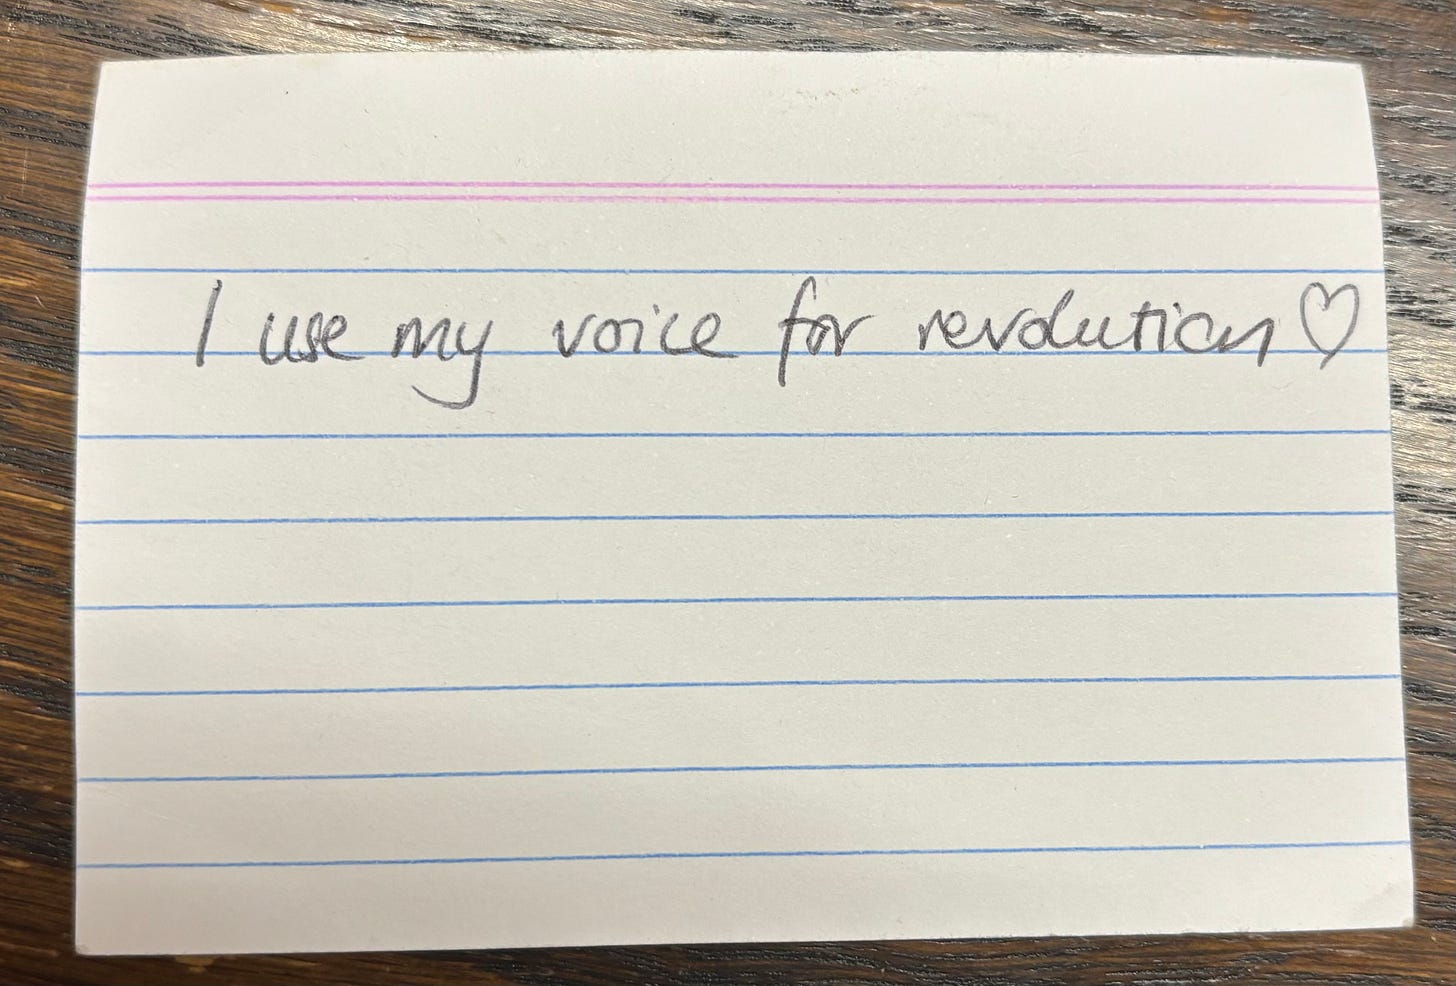 I use my voice for revolution ♡